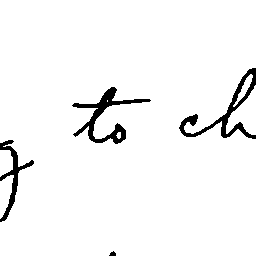 to ch